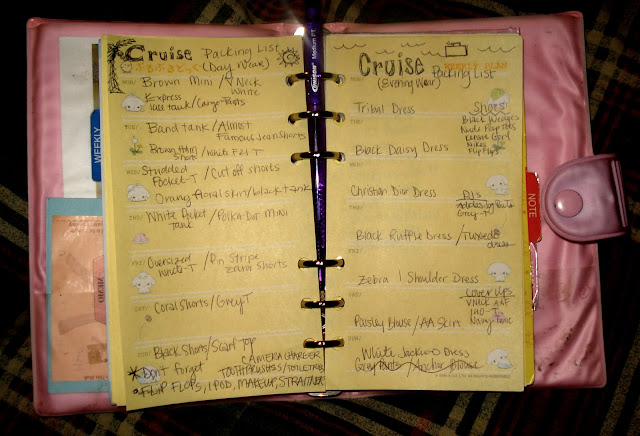 Cruise Packing List
(Day Wear)
MON/
Brown Mini / V Neck
White
Express
lace tank / Cargo Pants
TUE/
Band tank / Almost
Famous Jean Shorts
Brown
Shorts / White F21 T
WED/
Studded / Cut off shorts
Pocket-T
Orange floral skirt / black tank
THU/
White Picket / Polka Dot MINI
tank
FRI/
Oversized / Pin Stripe
White-T zebra shorts
SAT/
Coral Shorts / Grey T
SUN/
Black Shorts / Scarf Top
*Don't forget CAMERA CHARGER
TOOTHBRUSHES / TOILETRIES
FLIP FLOPS, IPOD, MAKEUP, STRAITNER
WEEKLY
MEMO
Medium PT
WEEKLY PLAN
Cruise Packing List
(Evening Wear)
MON/
Tribal Dress
Shoes!
Black Wedges
Nude Peep toes
Nikes
Flip Flops
TUE/
Black Daisy Dress
WED/
Christian Dior Dress
PJS
Grey-T
THU/
Black Ruffle Dress / Tuxedo
dress
FRI/
Zebra 1 Shoulder Dress
Cover Ups
V Neck A&F
Navy Tunic
SAT/
Paisley Blouse / AA Skirt
SUN/
White Jackie O Dress
Grey Pants / Anchor Blouse
NOTE